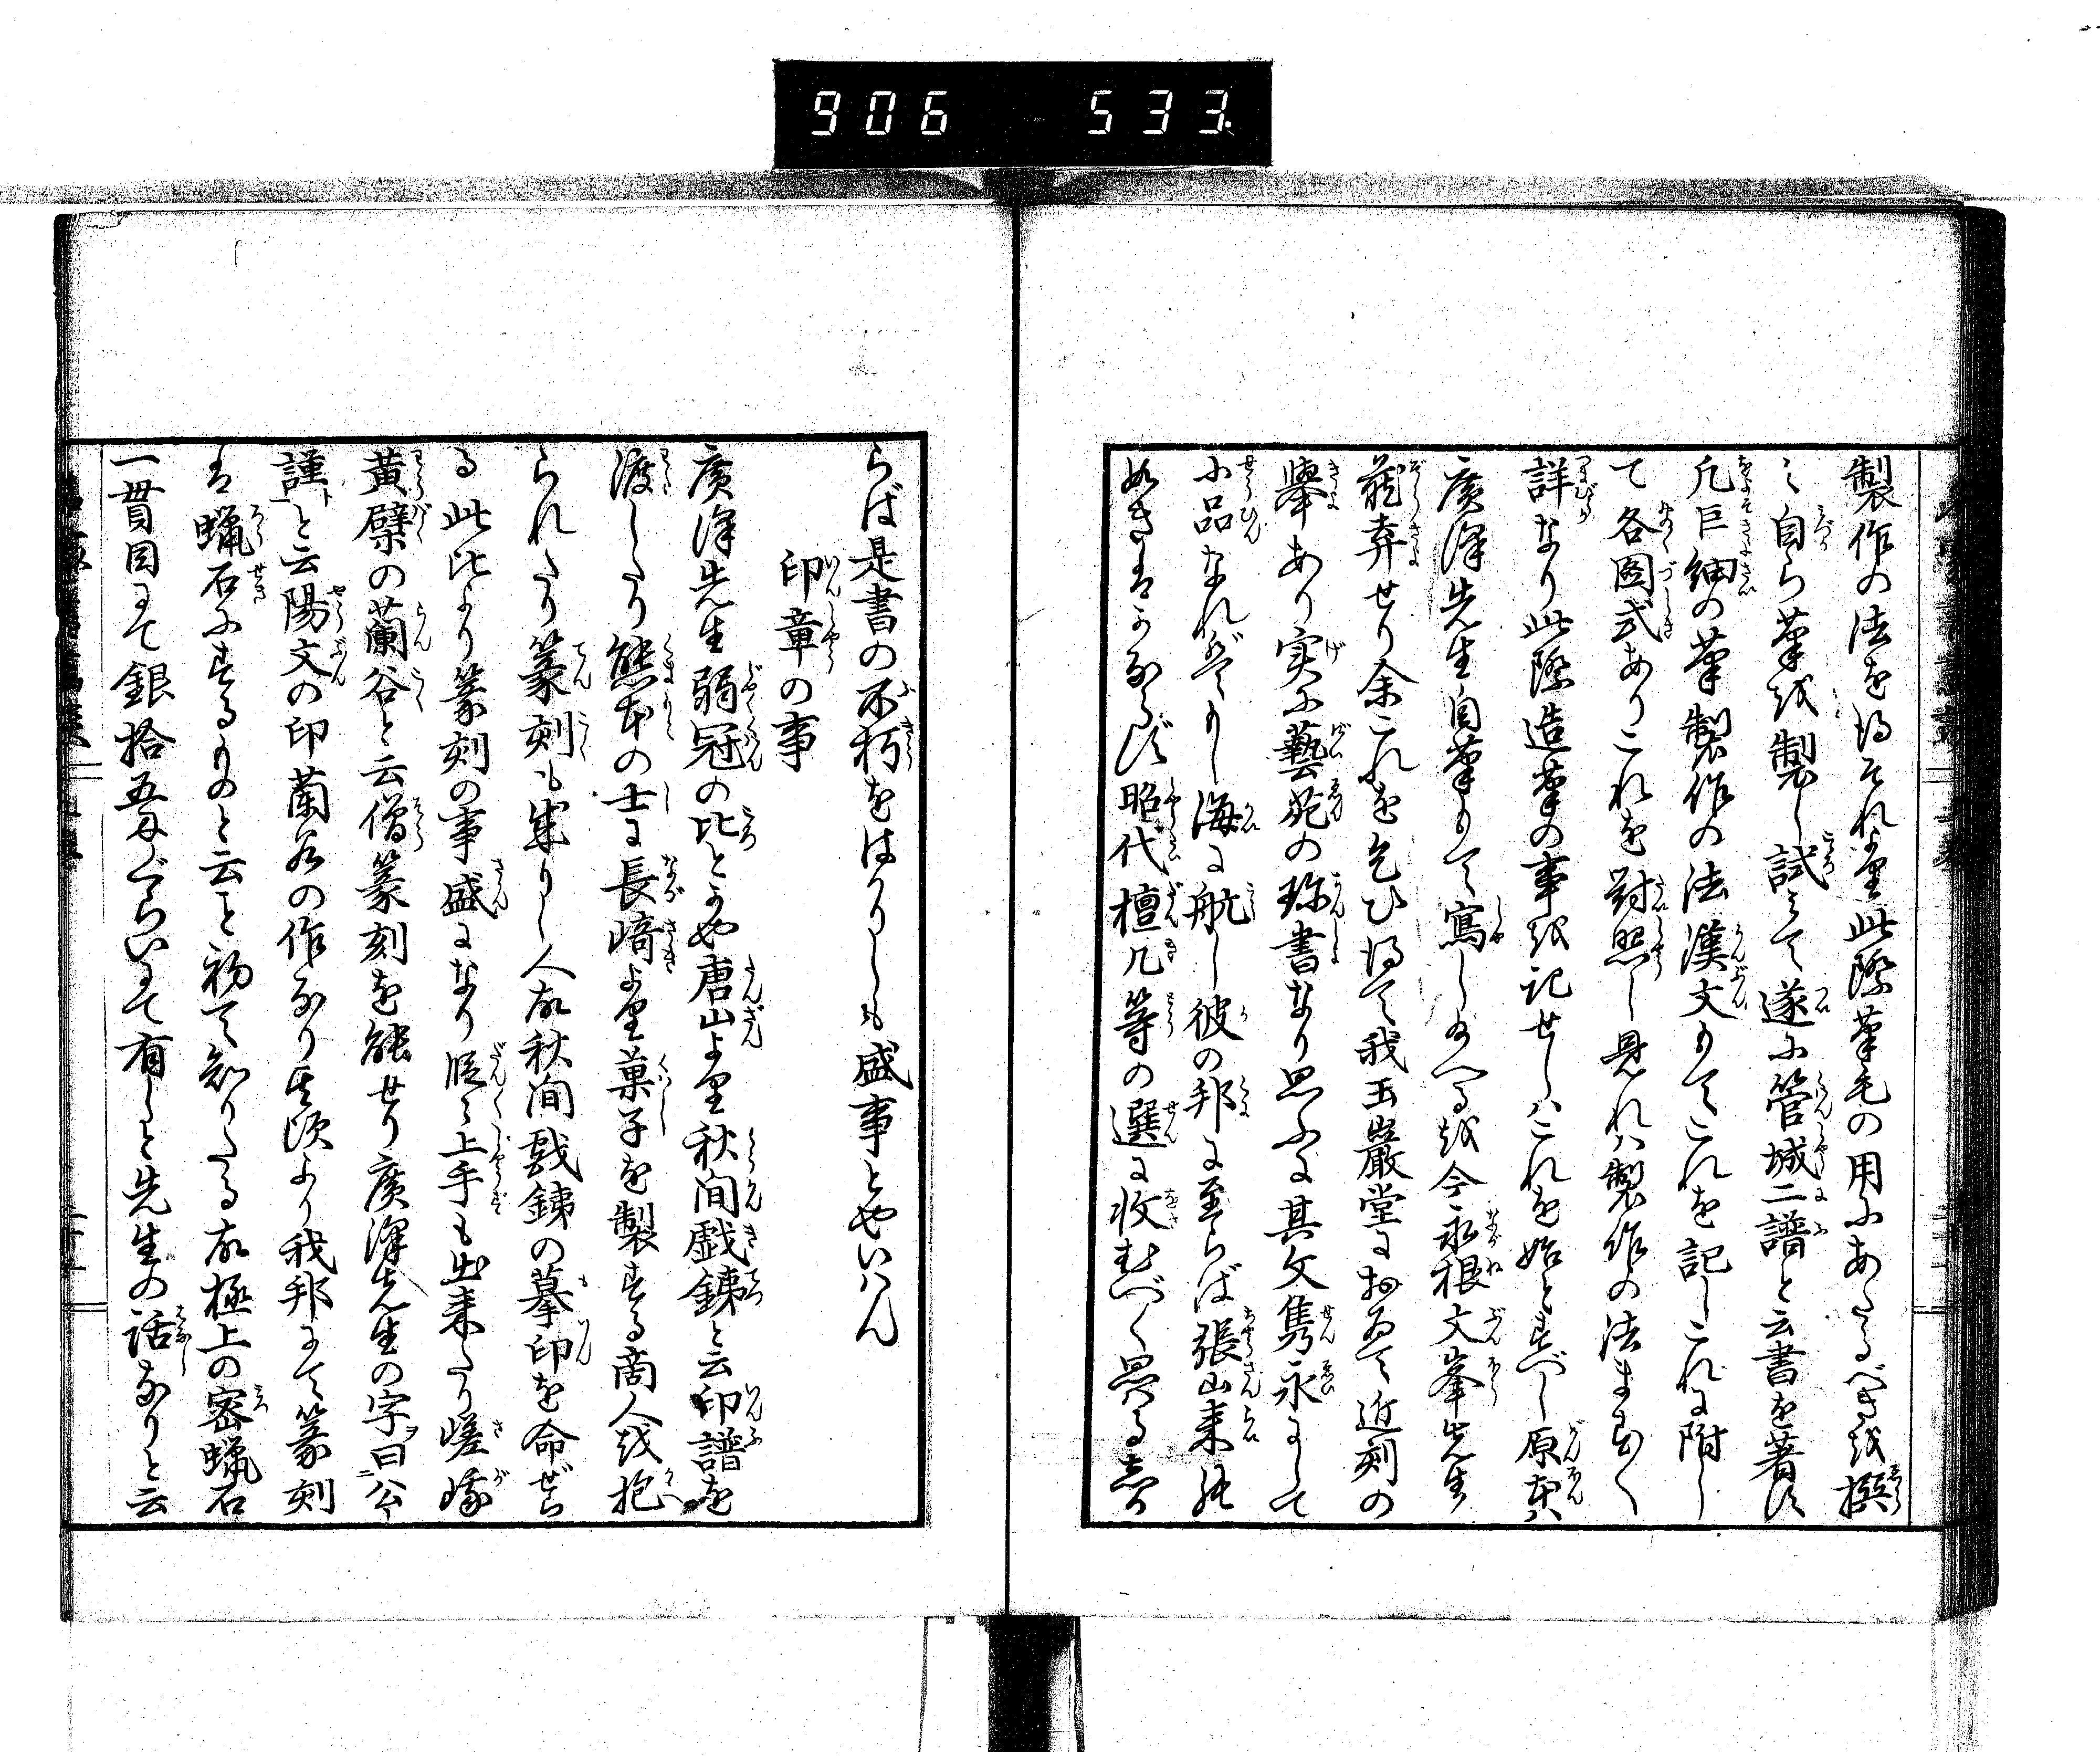 906 533
製作の法を得それより此際筆毛の用にあたるべきを撰
ミ自ら筆を製し試ミて遂に管城二譜と云書を著す
凡巨細の筆製作の法漢文もてこれを記しこれに附し
て各図式ありこれを対照し見れハ製作の法まつたく
詳なり此際造筆の事を記せしハこれを始とすべし原本ハ
廣澤先生自筆もて写し給へるを今永根文峯先生
蔵弆せり余これを乞ひ得て我玉巌堂におゐて近刻の
挙あり実に藝苑の珍書なり思ふに其文雋永にして
小品なれどもし海に航し彼の邦に至らば張山来能
如きはかならず昭代檀几等の選に收むべく思はる志か
らば是書の不朽をはかりしも盛事とやいハん
印章の事
廣澤先生弱冠の比とかや唐山より秋間戯銕と云印譜を
渡したり熊本の士に長崎より菓子を製する商人を抱
られたり篆刻も案りし人故秋間戯銕の摹印を命ぜら
る此比より篆刻の事盛になり段々上手も出来たり嵯峨
黄檗の蘭谷と云僧篆刻を能せり廣澤先生の字曰公
謹と云陽文の印蘭谷の作なり其頃より我邦にて篆刻
は蝋石にするものと云こと初て知りたる故極上の密蝋石
一貫目にて銀拾五匁ぐらいにて有しと先生の話なりと云